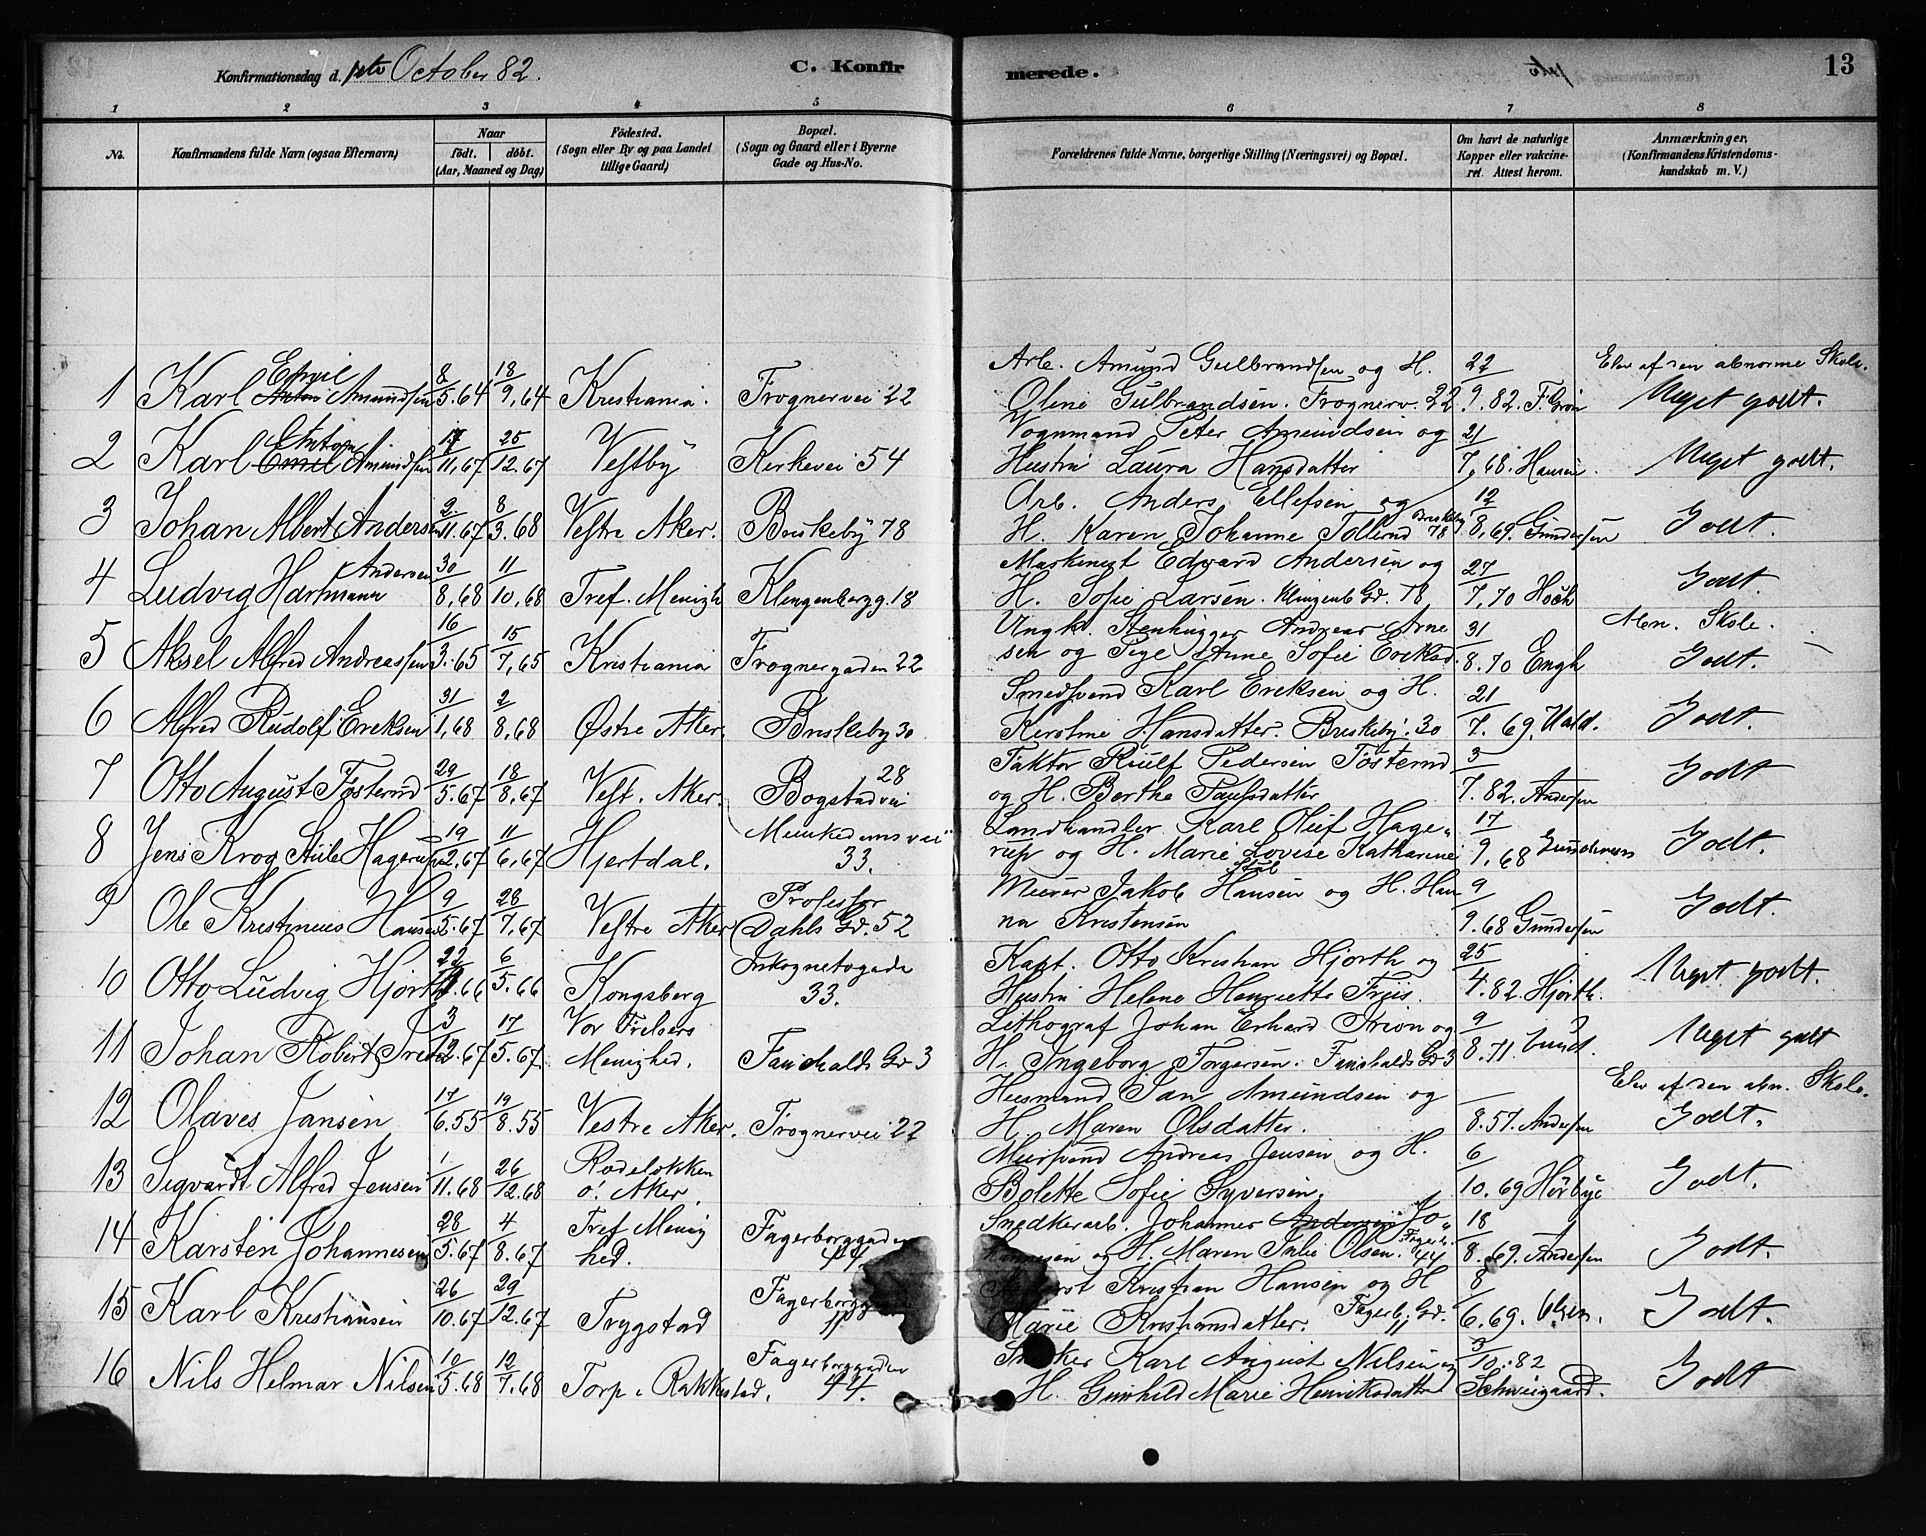 Konfirmationsdag d. 1ste October 82. C. Konfirmerede. 13
1 2 3 4 5 6 7 8
No. Konfirmandens fulde Navn (ogsaa Efternavn) Naar født. døbt. (Aar, Maaned og Dag) Fødested. (Sogn eller By og paa Landet tillige Gaard) Bopæl. (Sogn og Gaard eller i Byerne Gade og Hus-No. Forældrenes fulde Navne, borgerlige Stilling (Næringsvei) og Bopæl. Om havt de naturlige Kopper eller vakcineret. Attest herom. Anmærkninger. (Konfirmandens Kristendomskundskab m. V.)
1 Karl Emil Amundsen 8/5.64 18/9.64 Kristiania. Frognervei 22 Arb. Amund Gulbrandsen og H. Olene Gulbrandsen. Frognerv. 22 22/9.82. F. Grøn Elev af den abnorme Skole. Meget godt.
2 Karl Anton Amundsen 17/11.67 25/12.67 Vestby Kirkevei 54 Vognmand Peter Amundsen og Hustru Laura Hansdatter 21/7.68. Hansen. Meget godt.
3 Johan Albert Andersen 2/11.67 8/3.68 Vestre Aker. Briskeby 78 Arb. Anders Ellefsen og H. Karen Johanne Tollersrud Briskeby 78 12/8.69. Gundersen Godt.
4 Ludvig Hartmann Andersen 30/8.68 11/10.68 Tref. Menigh Klingenbergg. 18 Maskinist Edvard Andersen og H. Sofie Larsen. Klingenb Gd. 18 27/7.70 Hoch Godt.
5 Aksel Alfred Andreassen 16/3.65 15/7.65 Kristiania Frognergaden 22 Ungk. Stenhugger Andreas Arnesen og Pige Anne Sofie Eriksd. 31/8.70 Engh Abn. Skole. Godt.
6 Alfred Rudolf Eriksen 31/1.68 2/8.68 Østre Aker. Briskeby 30 Smedsvend Karl Eriksen og H. Karoline Hansdatter. Briskeby. 30 21/7.69. Godt.
7 Otto August Fosterud 29/5.67 18/8.67 Vest. Aker. Bogstadvei 28 Faktor Paul Pedersen Fosterud og H. Berthe Paulsdatter 3/7.82. Andersen Godt
8 Jens Krog Stub Hagerup 19/2.67 11/6.67 Hjertdal. Munkedamsvei 33. Landhandler Karl Oluf Hagerup og H. Marie Lovise Katharine Stub 17/9.68 Gundersen Godt.
9 Ole Kristinius Hansen 9/5.67 28/7.67 Vestre Aker Professor Dahls Gd. 52 Murer Jakob Hansen og H. Hanna Kristensen 9/9.68 Gundersen Godt.
10 Otto Ludvig Hjorth 22/.66 6/5.66 Kongsberg Inkognitogade 33. Kapt. Otto Kristian Hjorth og Hustru Helene Henriette Friis. 25/4.82. Hjorth. Meget godt.
11 Johan Robert 3/12.67 17/5.67. Vor Frelsers Menighed. Fauchalds Gd 3 Lithograf Johan Erhard Irion og H. Ingeborg Torgersen. Fauchalds Gd 3 9/8.71. Lund. Meget godt
12 Olaves Jansen 17/6.55 19/8.55 Vestre Aker. Frognervei 22 Husmand Jan Amundsen og H. Maren Olsdatter. 8.57. Andersen Elev af den abn. Skole. Godt.
13 Sigvardt Alfred Jensen 1/11.68 26/12.68 Rodeløkken ø. Aker. Murersvend Andreas Jensen og H. Bolette Sofie Syversen. 6/10.69 Hørbye Godt.
14 Karsten Johannesen 28/5.67 4/8.67 Tref Menighed. Fagerborggaden 44 Snedkerarb. Johannes Johannesen og H. Maren Julie Olsen. Fagerb. 44 18/8.69. Andersen Godt.
15 Karl Kristiansen 26/10.67 29/12.67 Trygstad Fagerborggaden 11 Kristian Hansen og H Marie Kristiansdatter. Fagerb. Gd. 11 8/6.69. Olsen. Godt.
16 Nils Helmar Nilsen 10/5.68 12/7.68 Torp i Rakkestad. Fagerborggaden 44. Snedker Karl August Nilsen og H. Gunhild Marie Henriksdatter 3/10.82 Schweigaard. Godt